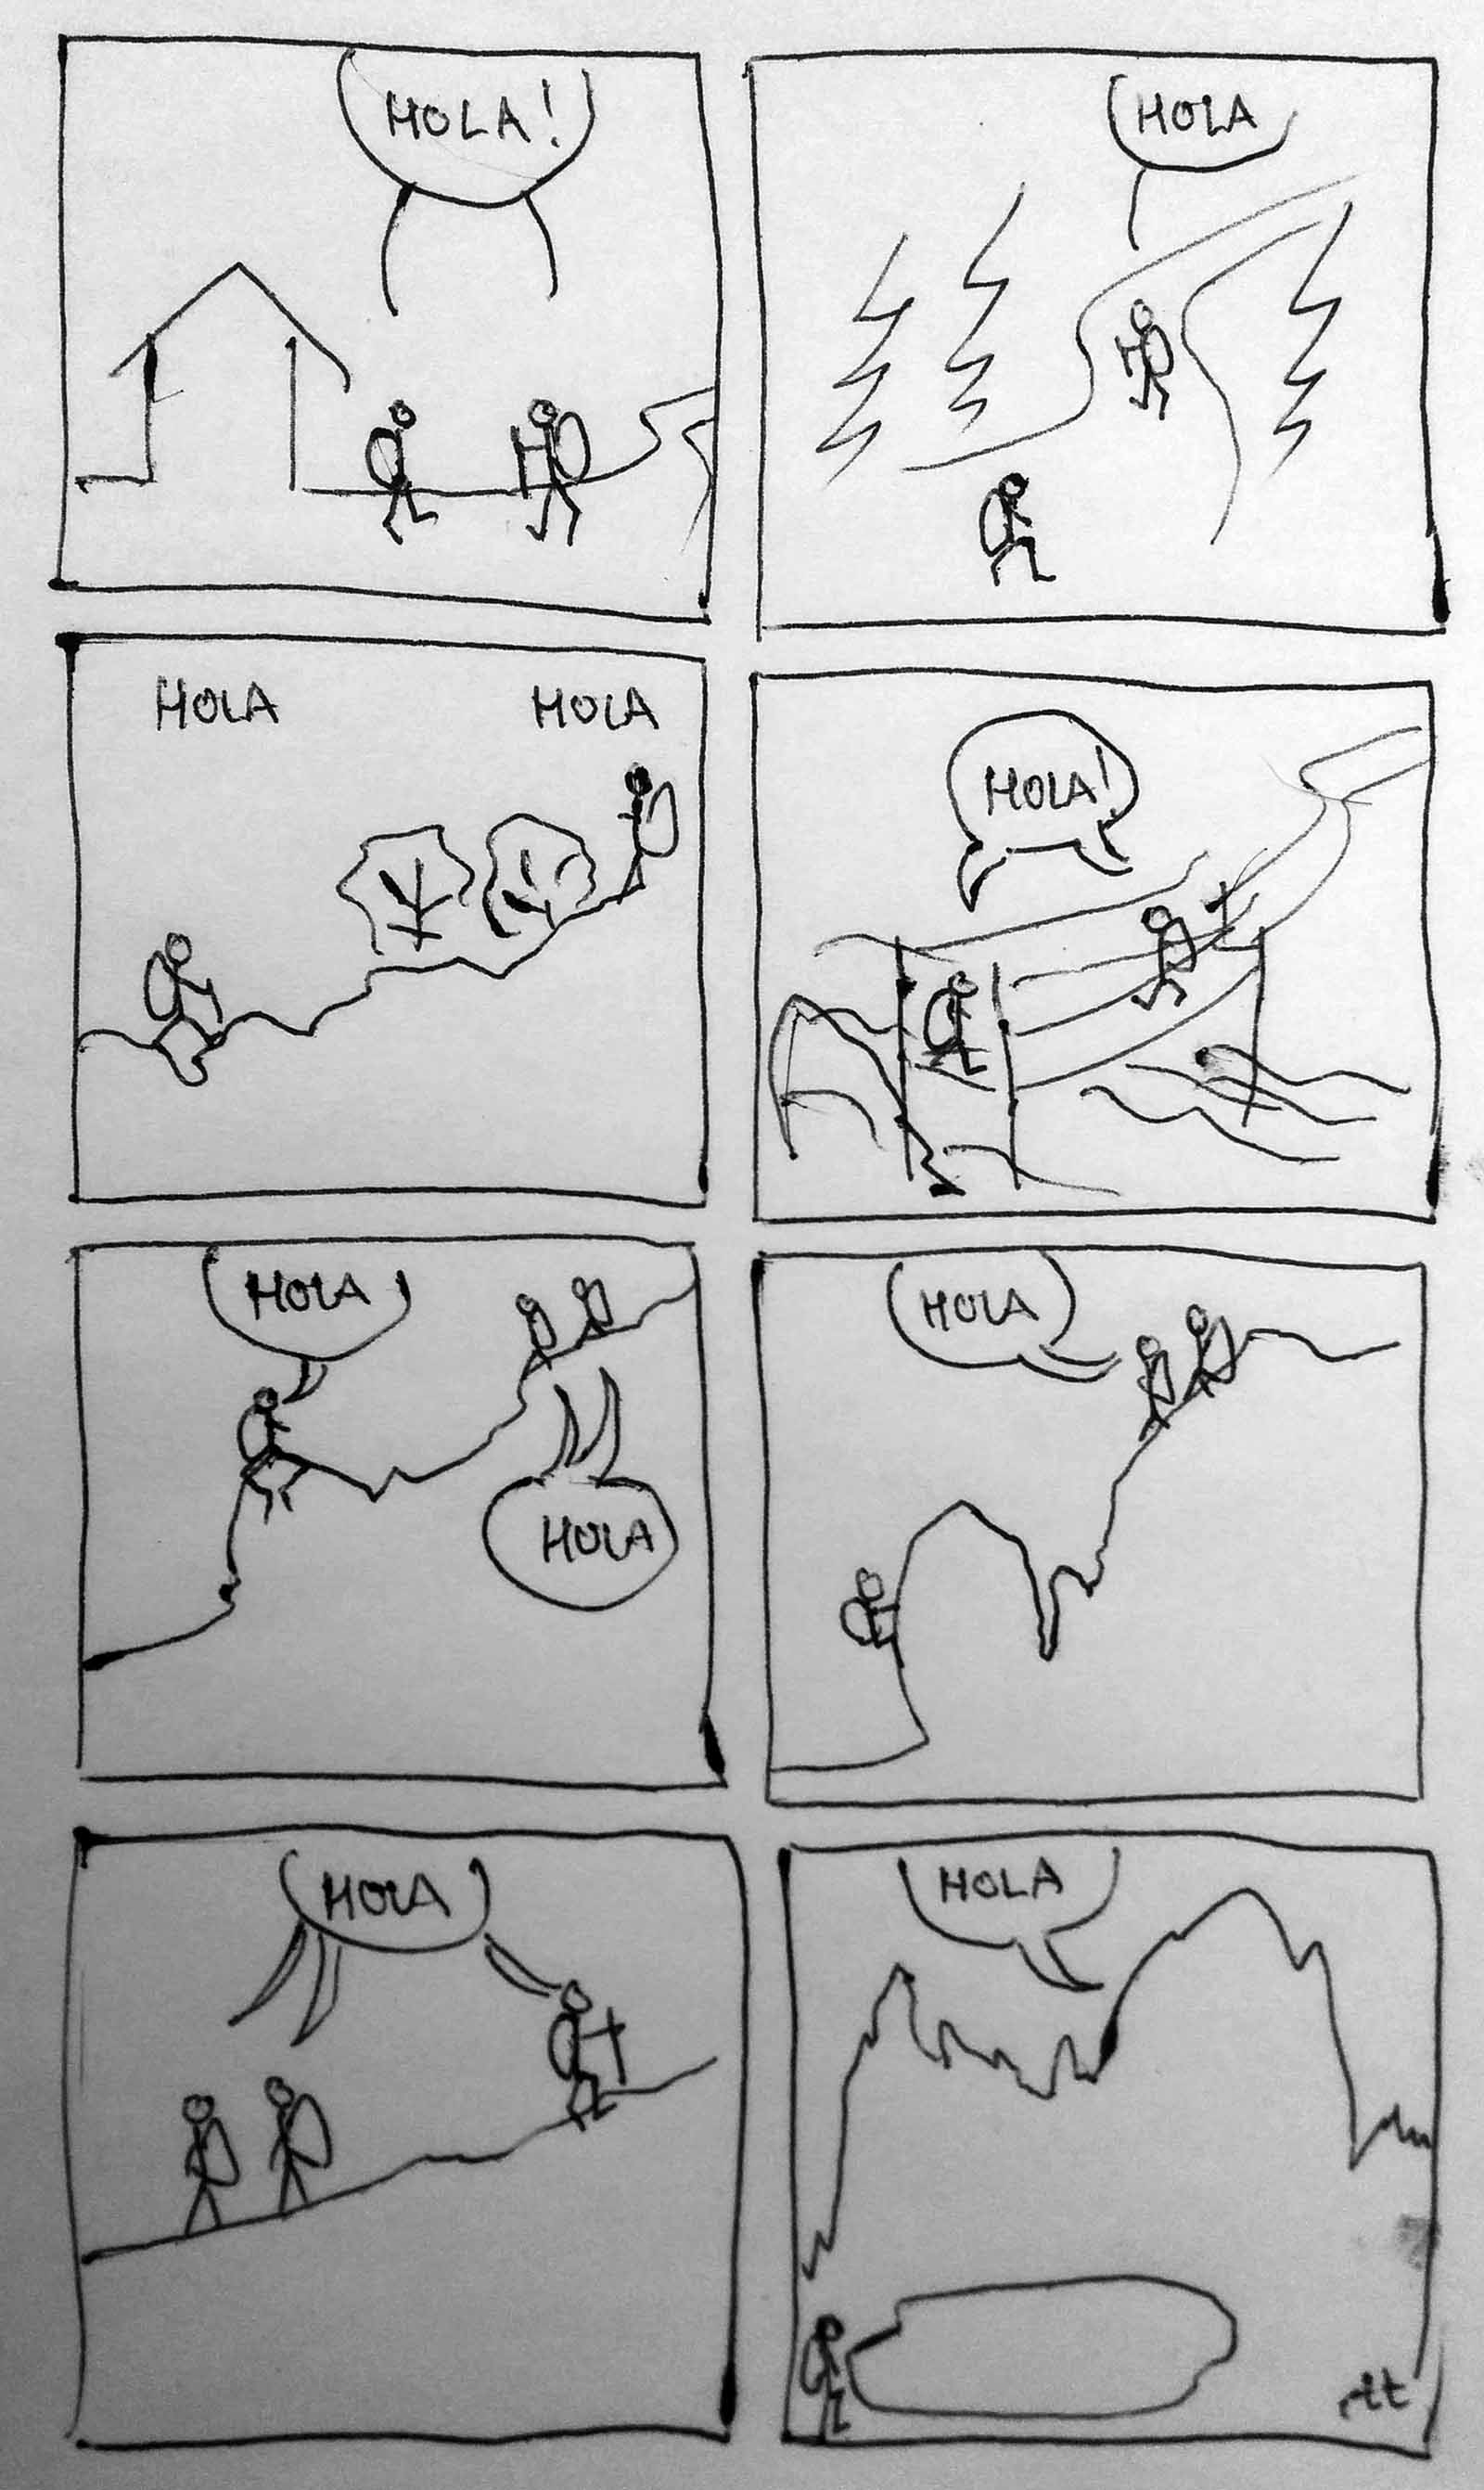 HOLA!
HOLA
HOLA
HOLA
HOLA!
HOLA
HOLA
HOLA
HOLA
HOLA